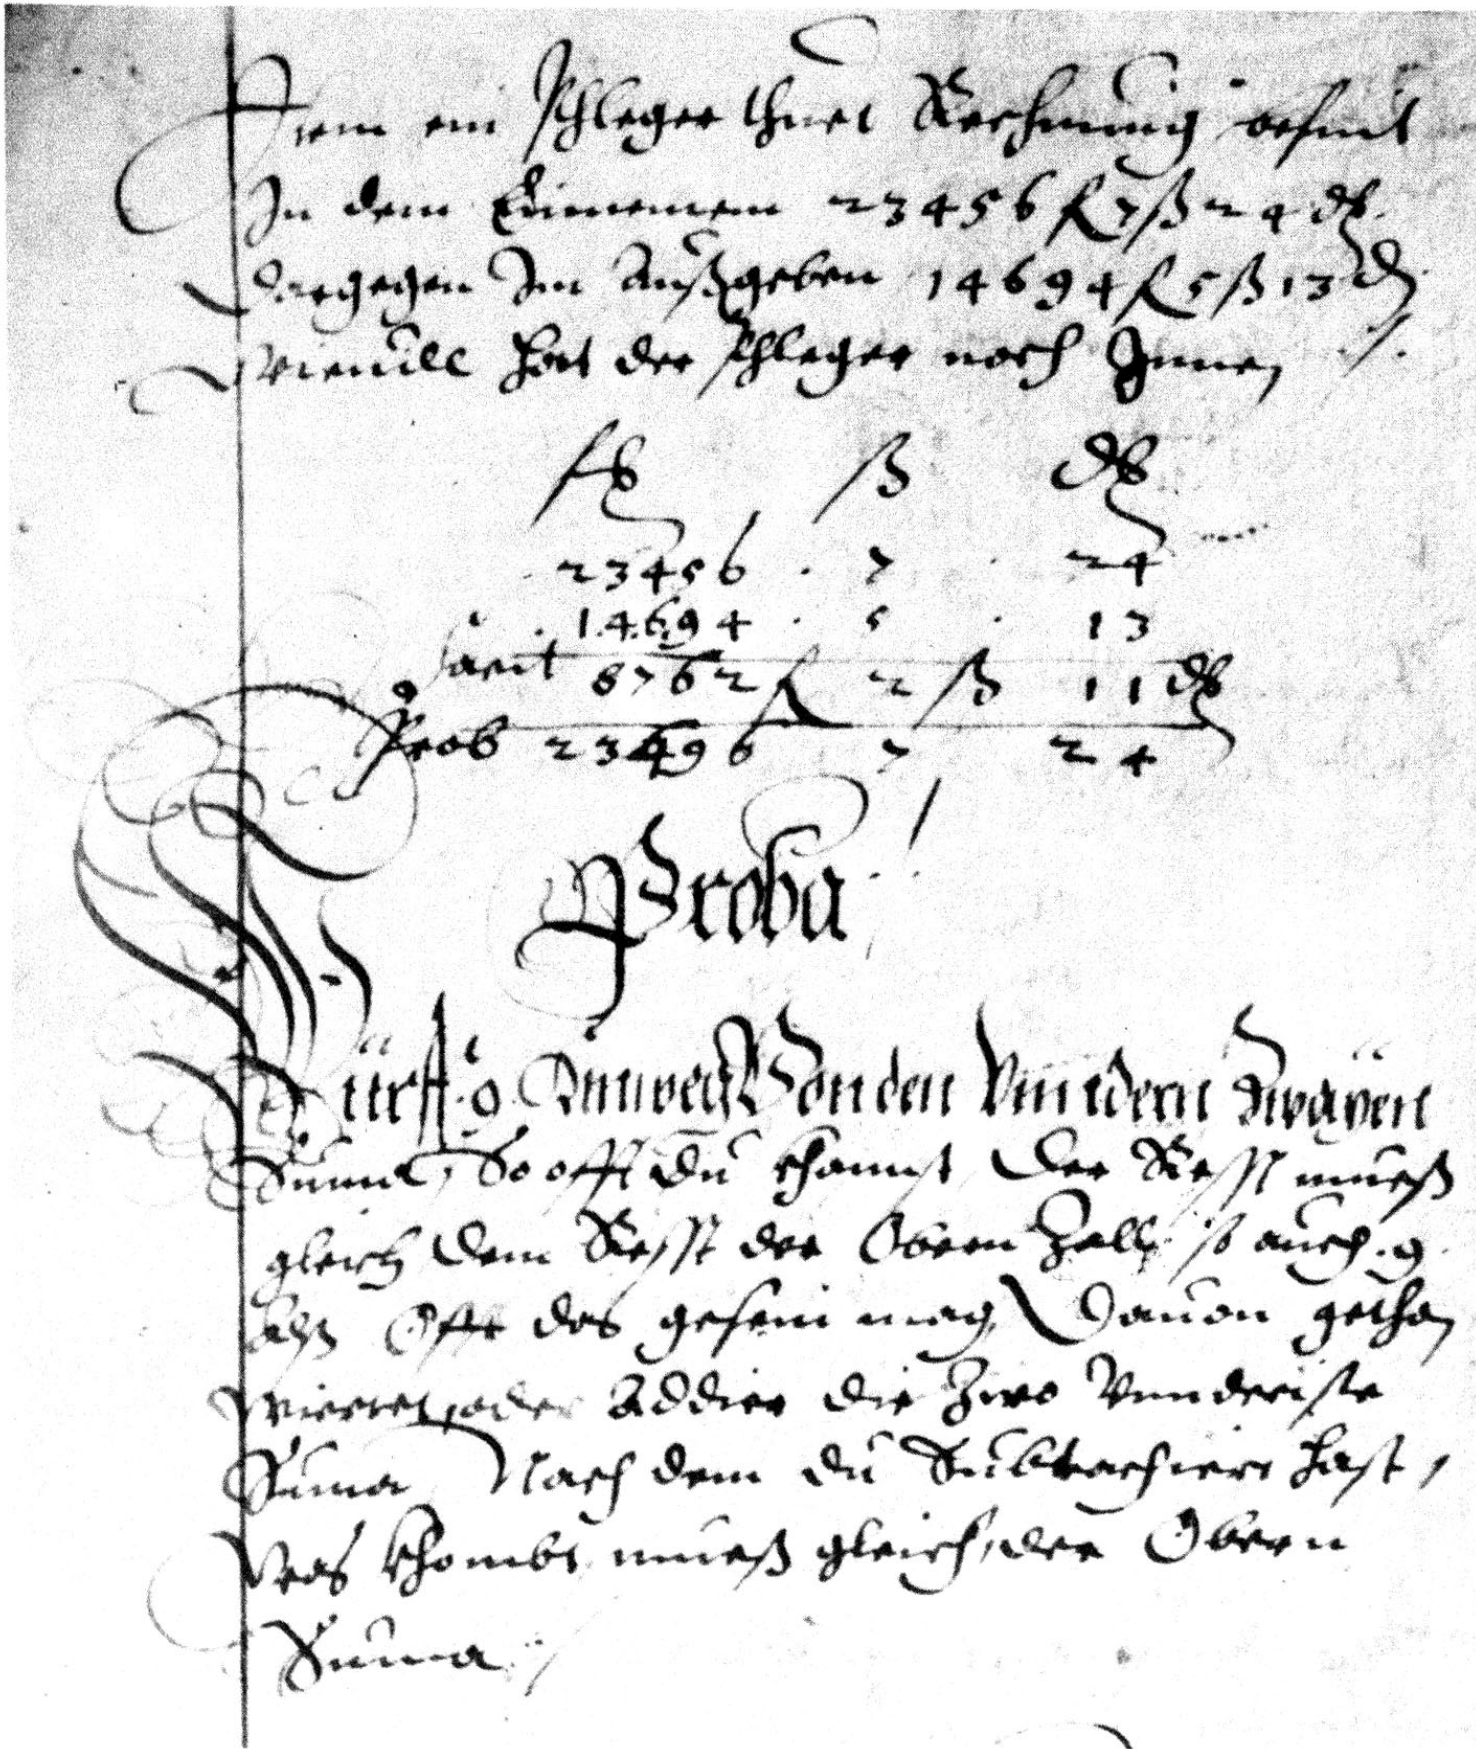 Item ein schleger thuet Rechnung befint
In dem Einnemem 23456 fl 7 ß 24 ₰
dargegen Im Außgeben 14694 fl 5 ß 13 ₰
wieuill hat der schleger noch Innen
fl ß ₰
23456 . 7 . 24
14694 . 5 . 13
facit 8762 fl 2 ß 11 ₰
Prob 23456 7 24
Proba
Würff 9 Hinweg Von den Vnndern Zwayen
Suma, So offt du khannst, Der Resst mueß
gleich dem Resst der Obern Zall so auch .9.
alß Offt das gesein mag, Dauon gethan
wierdet, oder Addier die Zwo Vnnderiste
Suma Nach dem du Subtrachiert hast,
Was khombt mueß gleich der Obern
Suma